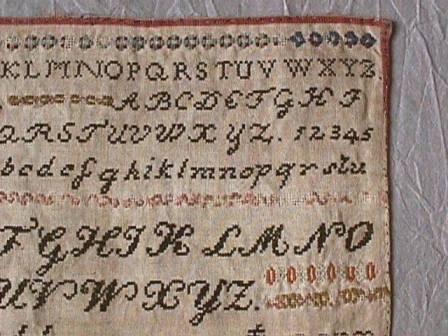 KLMNOPQRSTUVWXYZ
ABCDEFGHI
QRSTUVWXYZ. 12345
bcdefghiklmnopqrstu
FGHIKLMNO
UVWXYZ.